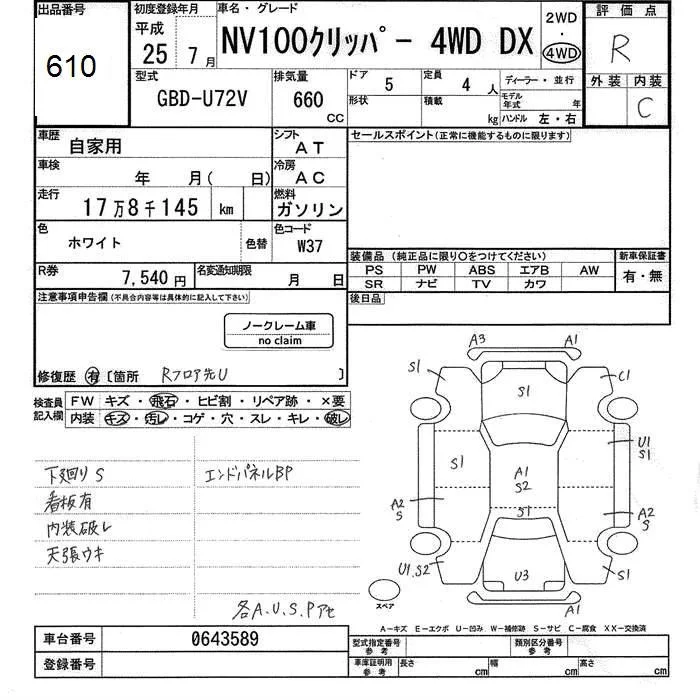 出品番号 初度登録年月 車名・グレード 2WD ・ 4WD 評価点
610 平成 25年 7月 NV100クリッパー 4WD DX R
型式 GBD-U72V 排気量 660 CC ドア 5 定員 4人 ディーラー・並行 外装 内装 C
形状 積載 kg モデル年式 年 ハンドル 左・右
車歴 自家用 シフト AT セールスポイント(正常に機能するものに限ります)
車検 年 月( 日) 冷房 AC
走行 17万8千145 km 燃料 ガソリン
色 ホワイト 色替 色コード W37
装備品(純正品に限り○をつけてください) 新車保証書
PS PW ABS エアB AW 有・無
SR ナビ TV カワ
R券 7,540円 名変通知期限 月 日
後日品
注意事項申告欄(不具合内容等は具体的に記入して下さい)
ノークレーム車
no claim
修復歴 有 〔箇所 Rフロア先U 〕
検査員記入欄 FW キズ・飛石・ヒビ割・リペア跡・×要
内装 キズ・汚レ・コゲ・穴・スレ・キレ・破レ
下廻りS エンドパネルBP
看板有
内装破レ
天張ウキ
各A.U.S.Pアセ
A3 A1
S1 S1 C1
S1 A1 S2 U1 S1
S1
A2 S A2 S
U1.S2 U3 S1
A1
スペア
A-キズ E-エクボ U-凹み W-補修跡 S-サビ C-腐食 XX-交換済
車台番号 0643589 型式指定番号 参考 類別区分番号 参考
登録番号 車庫証明用 参考 長さ cm 幅 cm 高さ cm